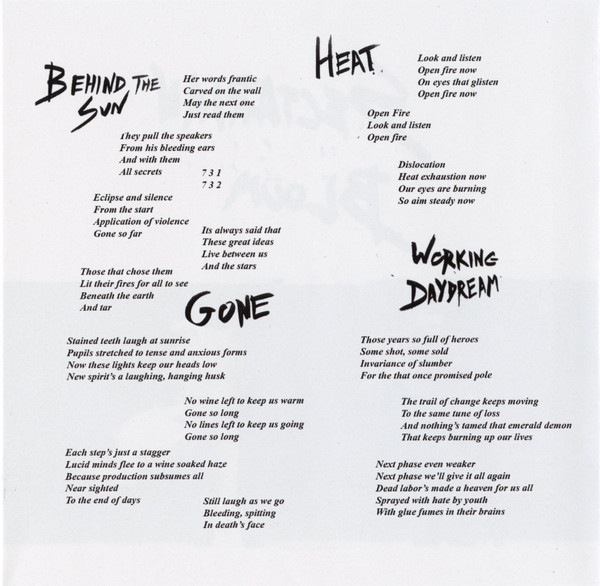 BEHIND THE SUN
Her words frantic
Carved on the wall
May the next one
Just read them
They pull the speakers
From his bleeding ears
And with them
All secrets
7 3 1
7 3 2
Eclipse and silence
From the start
Application of violence
Gone so far
Its always said that
These great ideas
Live between us
And the stars
Those that chose them
Lit their fires for all to see
Beneath the earth
And tar
GONE
Stained teeth laugh at sunrise
Pupils stretched to tense and anxious forms
Now these lights keep our heads low
New spirit's a laughing, hanging husk
No wine left to keep us warm
Gone so long
No lines left to keep us going
Gone so long
Each step's just a stagger
Lucid minds flee to a wine soaked haze
Because production subsumes all
Near sighted
To the end of days
Still laugh as we go
Bleeding, spitting
In death's face
HEAT
Look and listen
Open fire now
On eyes that glisten
Open fire now
Open Fire
Look and listen
Open fire
Dislocation
Heat exhaustion now
Our eyes are burning
So aim steady now
WORKING
DAYDREAM
Those years so full of heroes
Some shot, some sold
Invariance of slumber
For the that once promised pole
The trail of change keeps moving
To the same tune of loss
And nothing's tamed that emerald demon
That keeps burning up our lives
Next phase even weaker
Next phase we'll give it all again
Dead labor's made a heaven for us all
Sprayed with hate by youth
With glue fumes in their brains